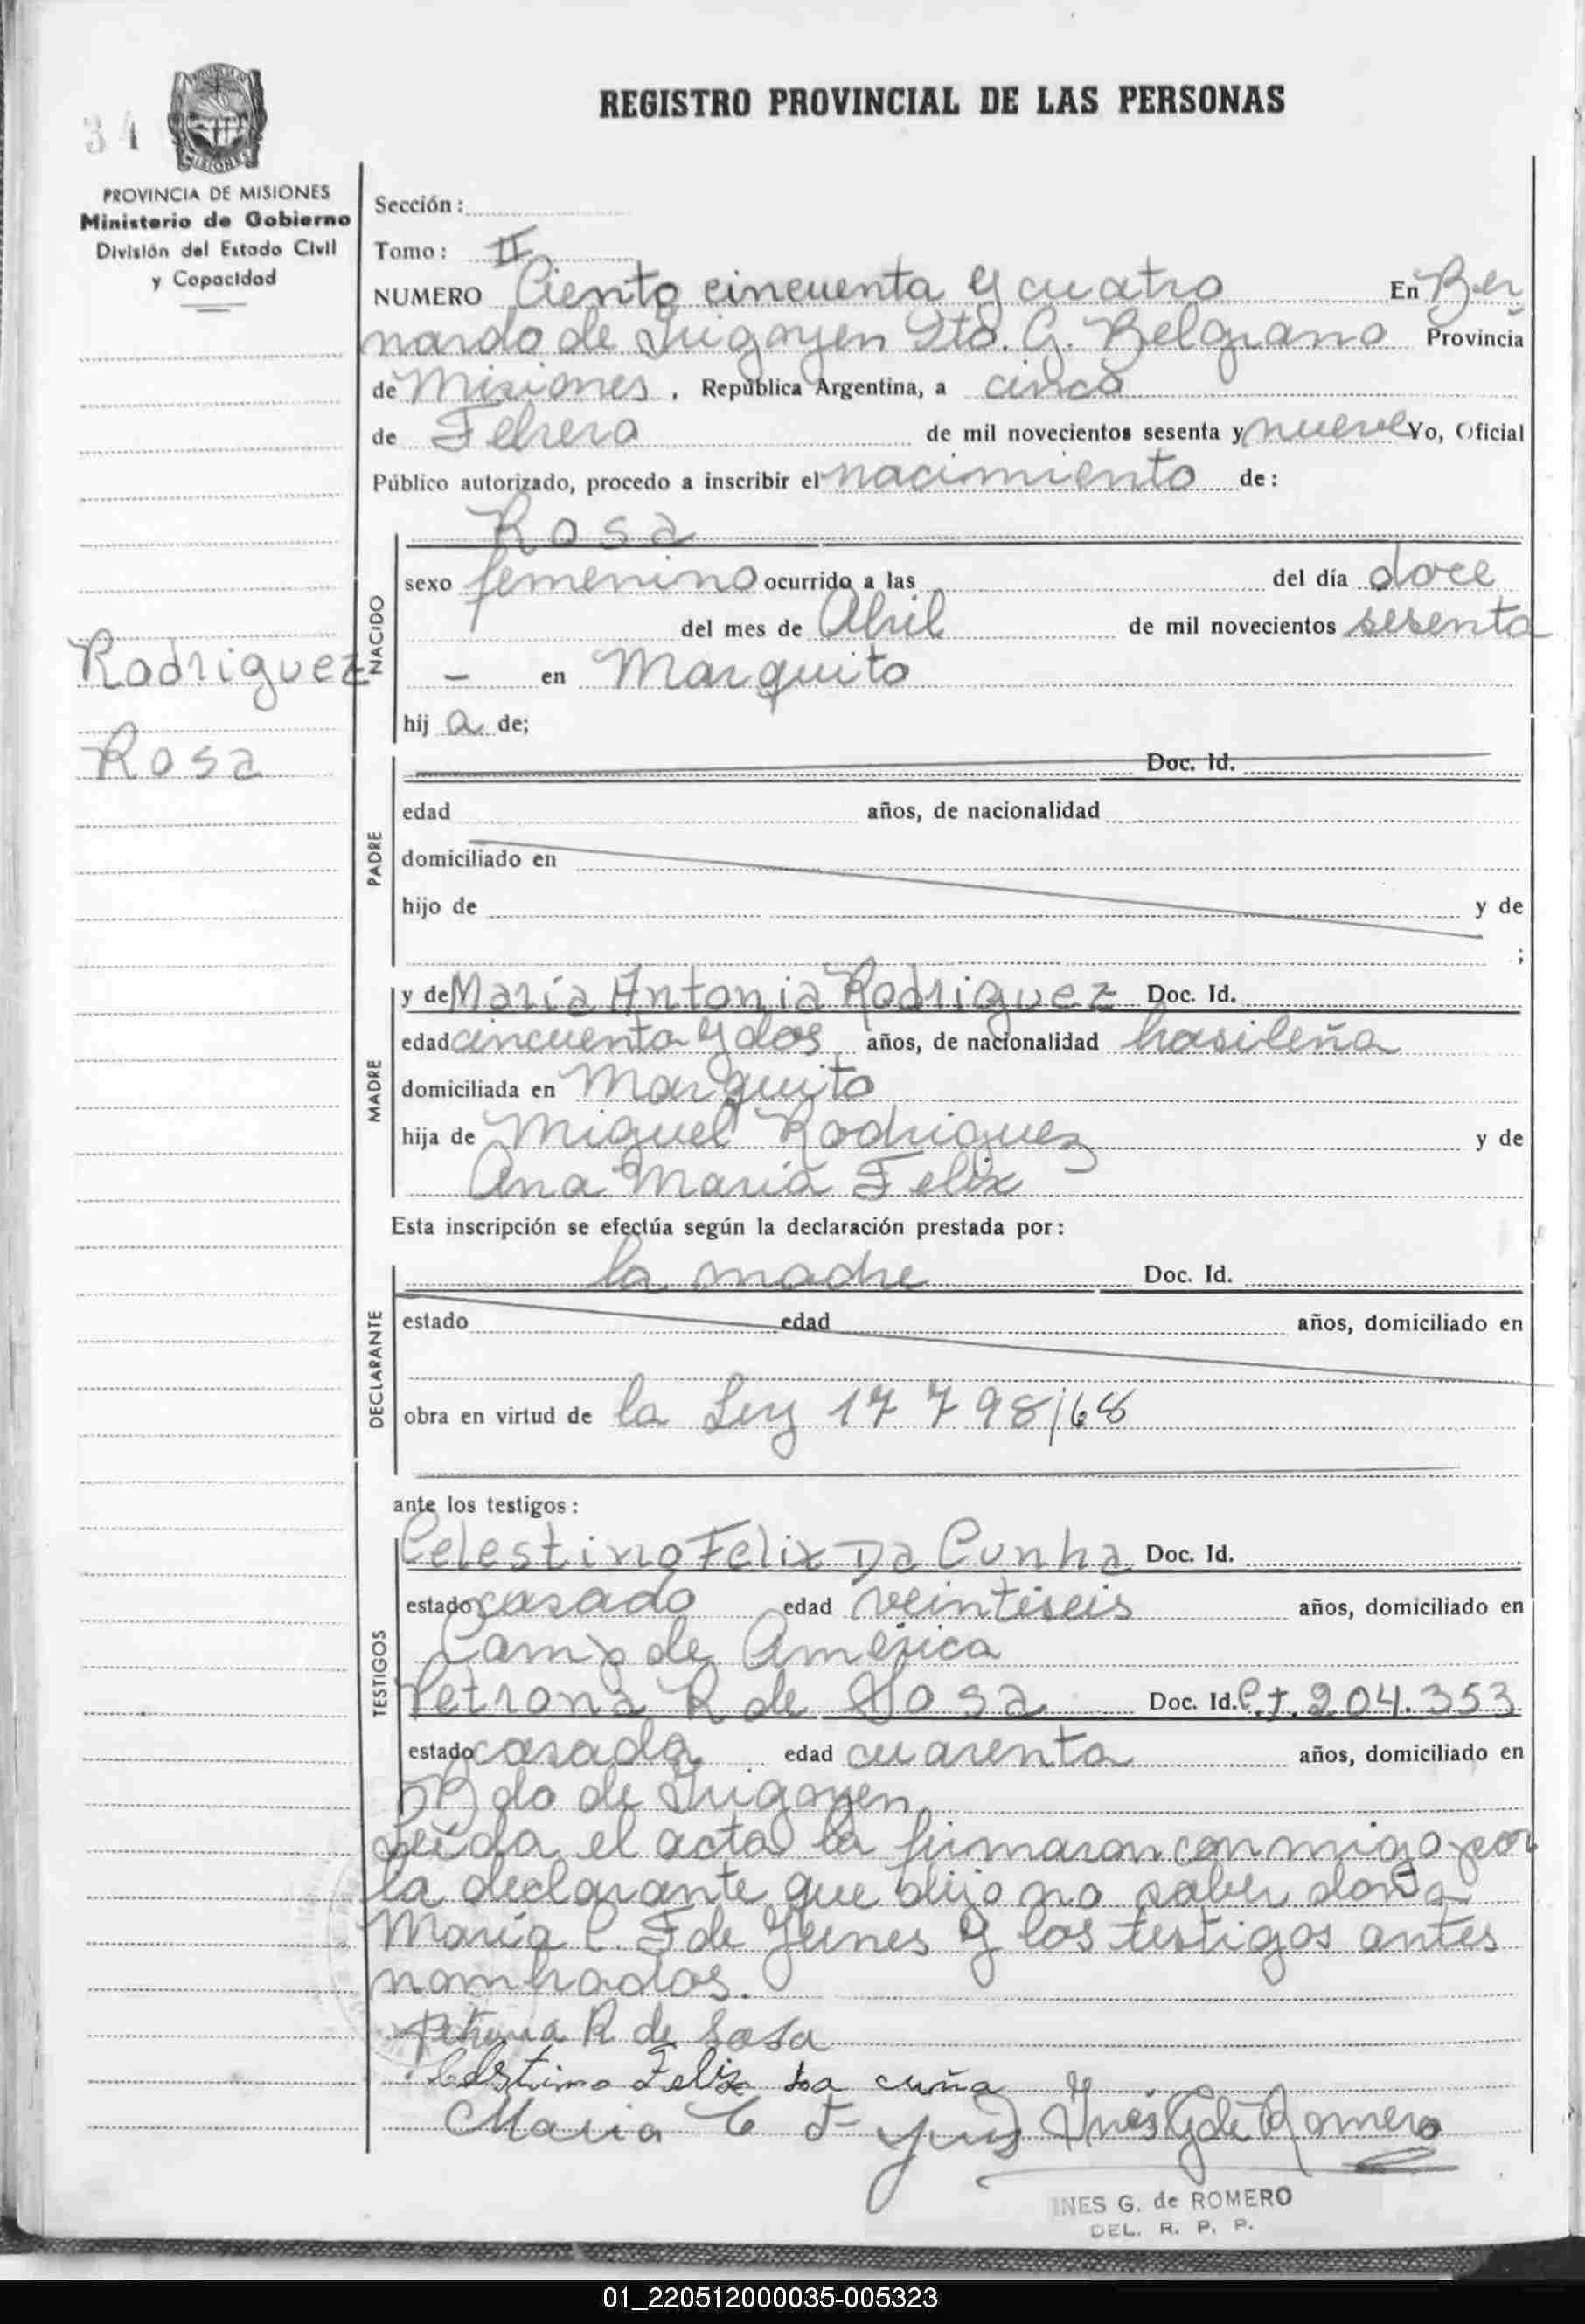 34
REGISTRO PROVINCIAL DE LAS PERSONAS
PROVINCIA DE MISIONES
Ministerio de Gobierno
División del Estado Civil
y Capacidad
Sección:
Tomo: II
NUMERO Ciento cincuenta y cuatro En Ber
nardo de Irigoyen Dto. G. Belgrano Provincia
de Misiones, República Argentina, a cinco
de Febrero de mil novecientos sesenta y nueve Yo, Oficial
Público autorizado, procedo a inscribir el nacimiento de:
Rosa
NACIDO
sexo femenino ocurrido a las del día doce
del mes de Abril de mil novecientos sesenta
Rodriguez
- en Marquito
hij a de;
Rosa
PADRE
Doc. Id.
edad años, de nacionalidad
domiciliado en
hijo de y de
;
MADRE
y de María Antonia Rodriguez Doc. Id.
edad cincuenta y dos años, de nacionalidad brasileña
domiciliada en Marquito
hija de Miguel Rodriguez y de
Ana María Felix
Esta inscripción se efectúa según la declaración prestada por:
DECLARANTE
la madre Doc. Id.
estado edad años, domiciliado en
obra en virtud de la Ley 17 798/68
ante los testigos:
TESTIGOS
Celestino Felix Da Cunha Doc. Id.
estado casado edad veintiseis años, domiciliado en
de América
Petrona R de Sosa Doc. Id. C.I. 204.353
estado casada edad cuarenta años, domiciliado en
Bdo de Irigoyen
Leída el acta la firmaron conmigo por
la declarante que dijo no saber doña
María C. F de Yunes y los testigos antes
nombrados.
Petrona R. de Sosa
Celstino Felix da cuña
Maria C F Ynes G de Romero
INES G. de ROMERO
DEL. R. P. P.
01_220512000035-005323